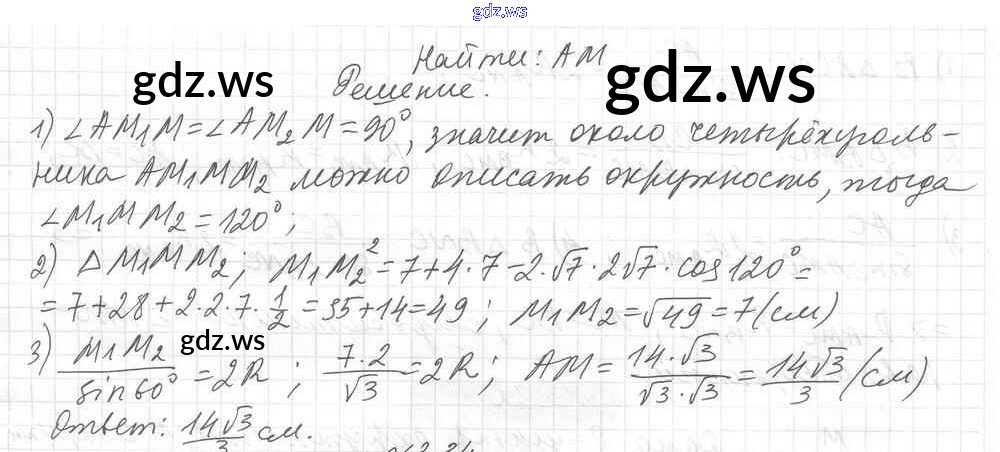 gdz.ws
Найти: AM
gdz.ws
gdz.ws
Решение.
1) ∠AM₁M=∠AM₂M=90°, значит около четырёхуголь-
ника AM₁MM₂ можно описать окружность, тогда
∠M₁MM₂=120°;
2) △M₁MM₂; M₁M₂²=7+4·7-2·√7·2√7·cos120°=
=7+28+2·2·7·1/2=35+14=49; M₁M₂=√49=7(см)
gdz.ws
3) M₁M₂/sin60°=2R; 7·2/√3=2R; AM=14·√3/√3·√3=14√3/3(см)
Ответ: 14√3/3 см.
gdz.ws
gdz.ws